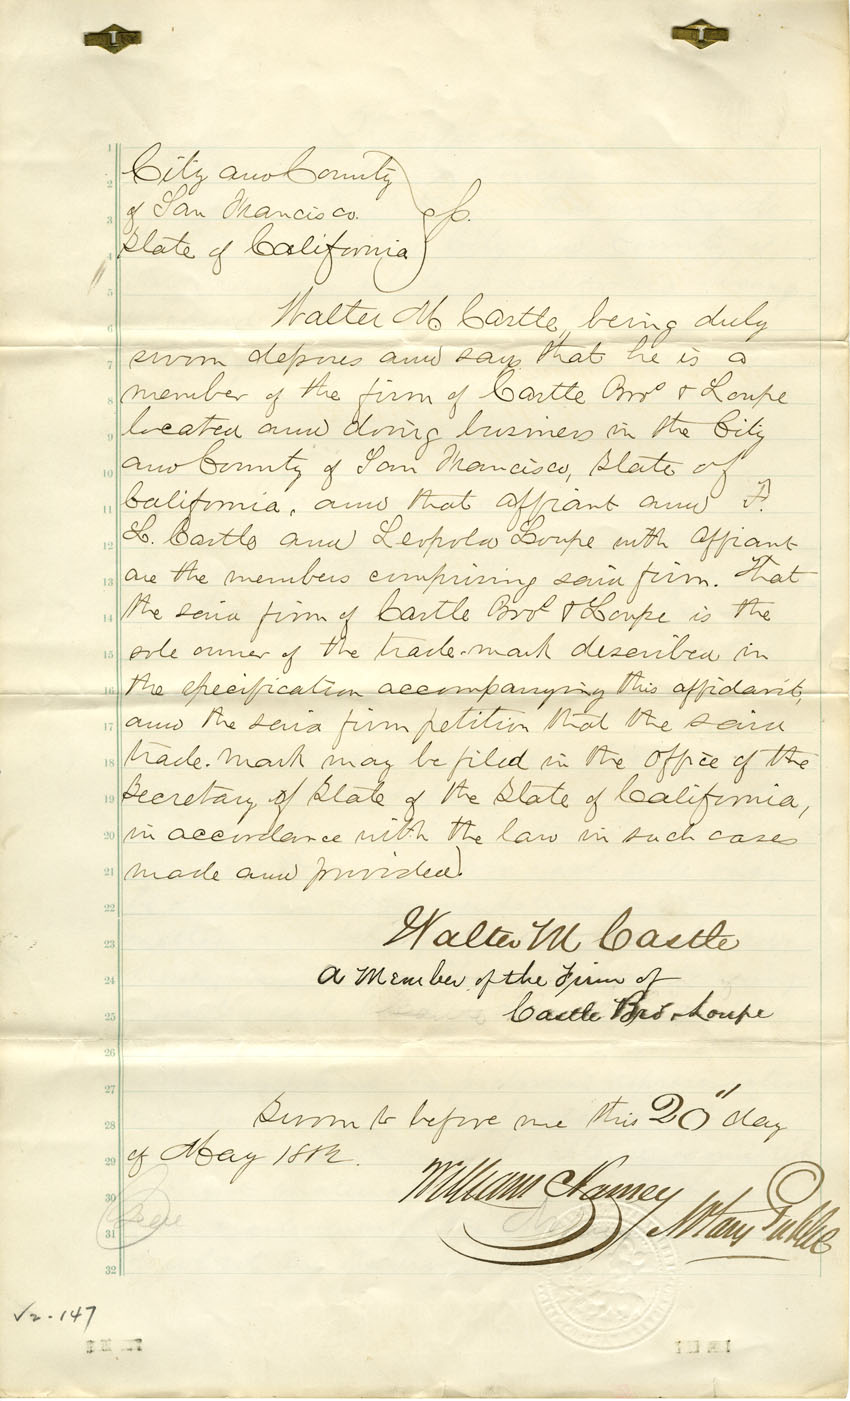 City and County
of San Francisco. } ss.
State of California
Walter M Castle, being duly
sworn deposes and says that he is a
member of the firm of Castle Bros & Loupe
located and doing business in the City
and County of San Francisco, State of
California, and that affiant and F.
L. Castle and Leopold Loupe with affiant
are the members comprising said firm. That
the said firm of Castle Bros & Loupe is the
sole owner of the trade-mark described in
the specification accompanying this affidavit,
and the said firm petition that the said
trade-mark may be filed in the office of the
Secretary of State of the State of California,
in accordance with the law in such cases
made and provided.
Walter M Castle
A Member of the Firm of
Castle Bros & Loupe
Sworn to before me this 20" day
of May 1882.
William Harney
Notary Public
Seal
v2-147
1
2
3
4
5
6
7
8
9
10
11
12
13
14
15
16
17
18
19
20
21
22
23
24
25
26
27
28
29
30
31
32